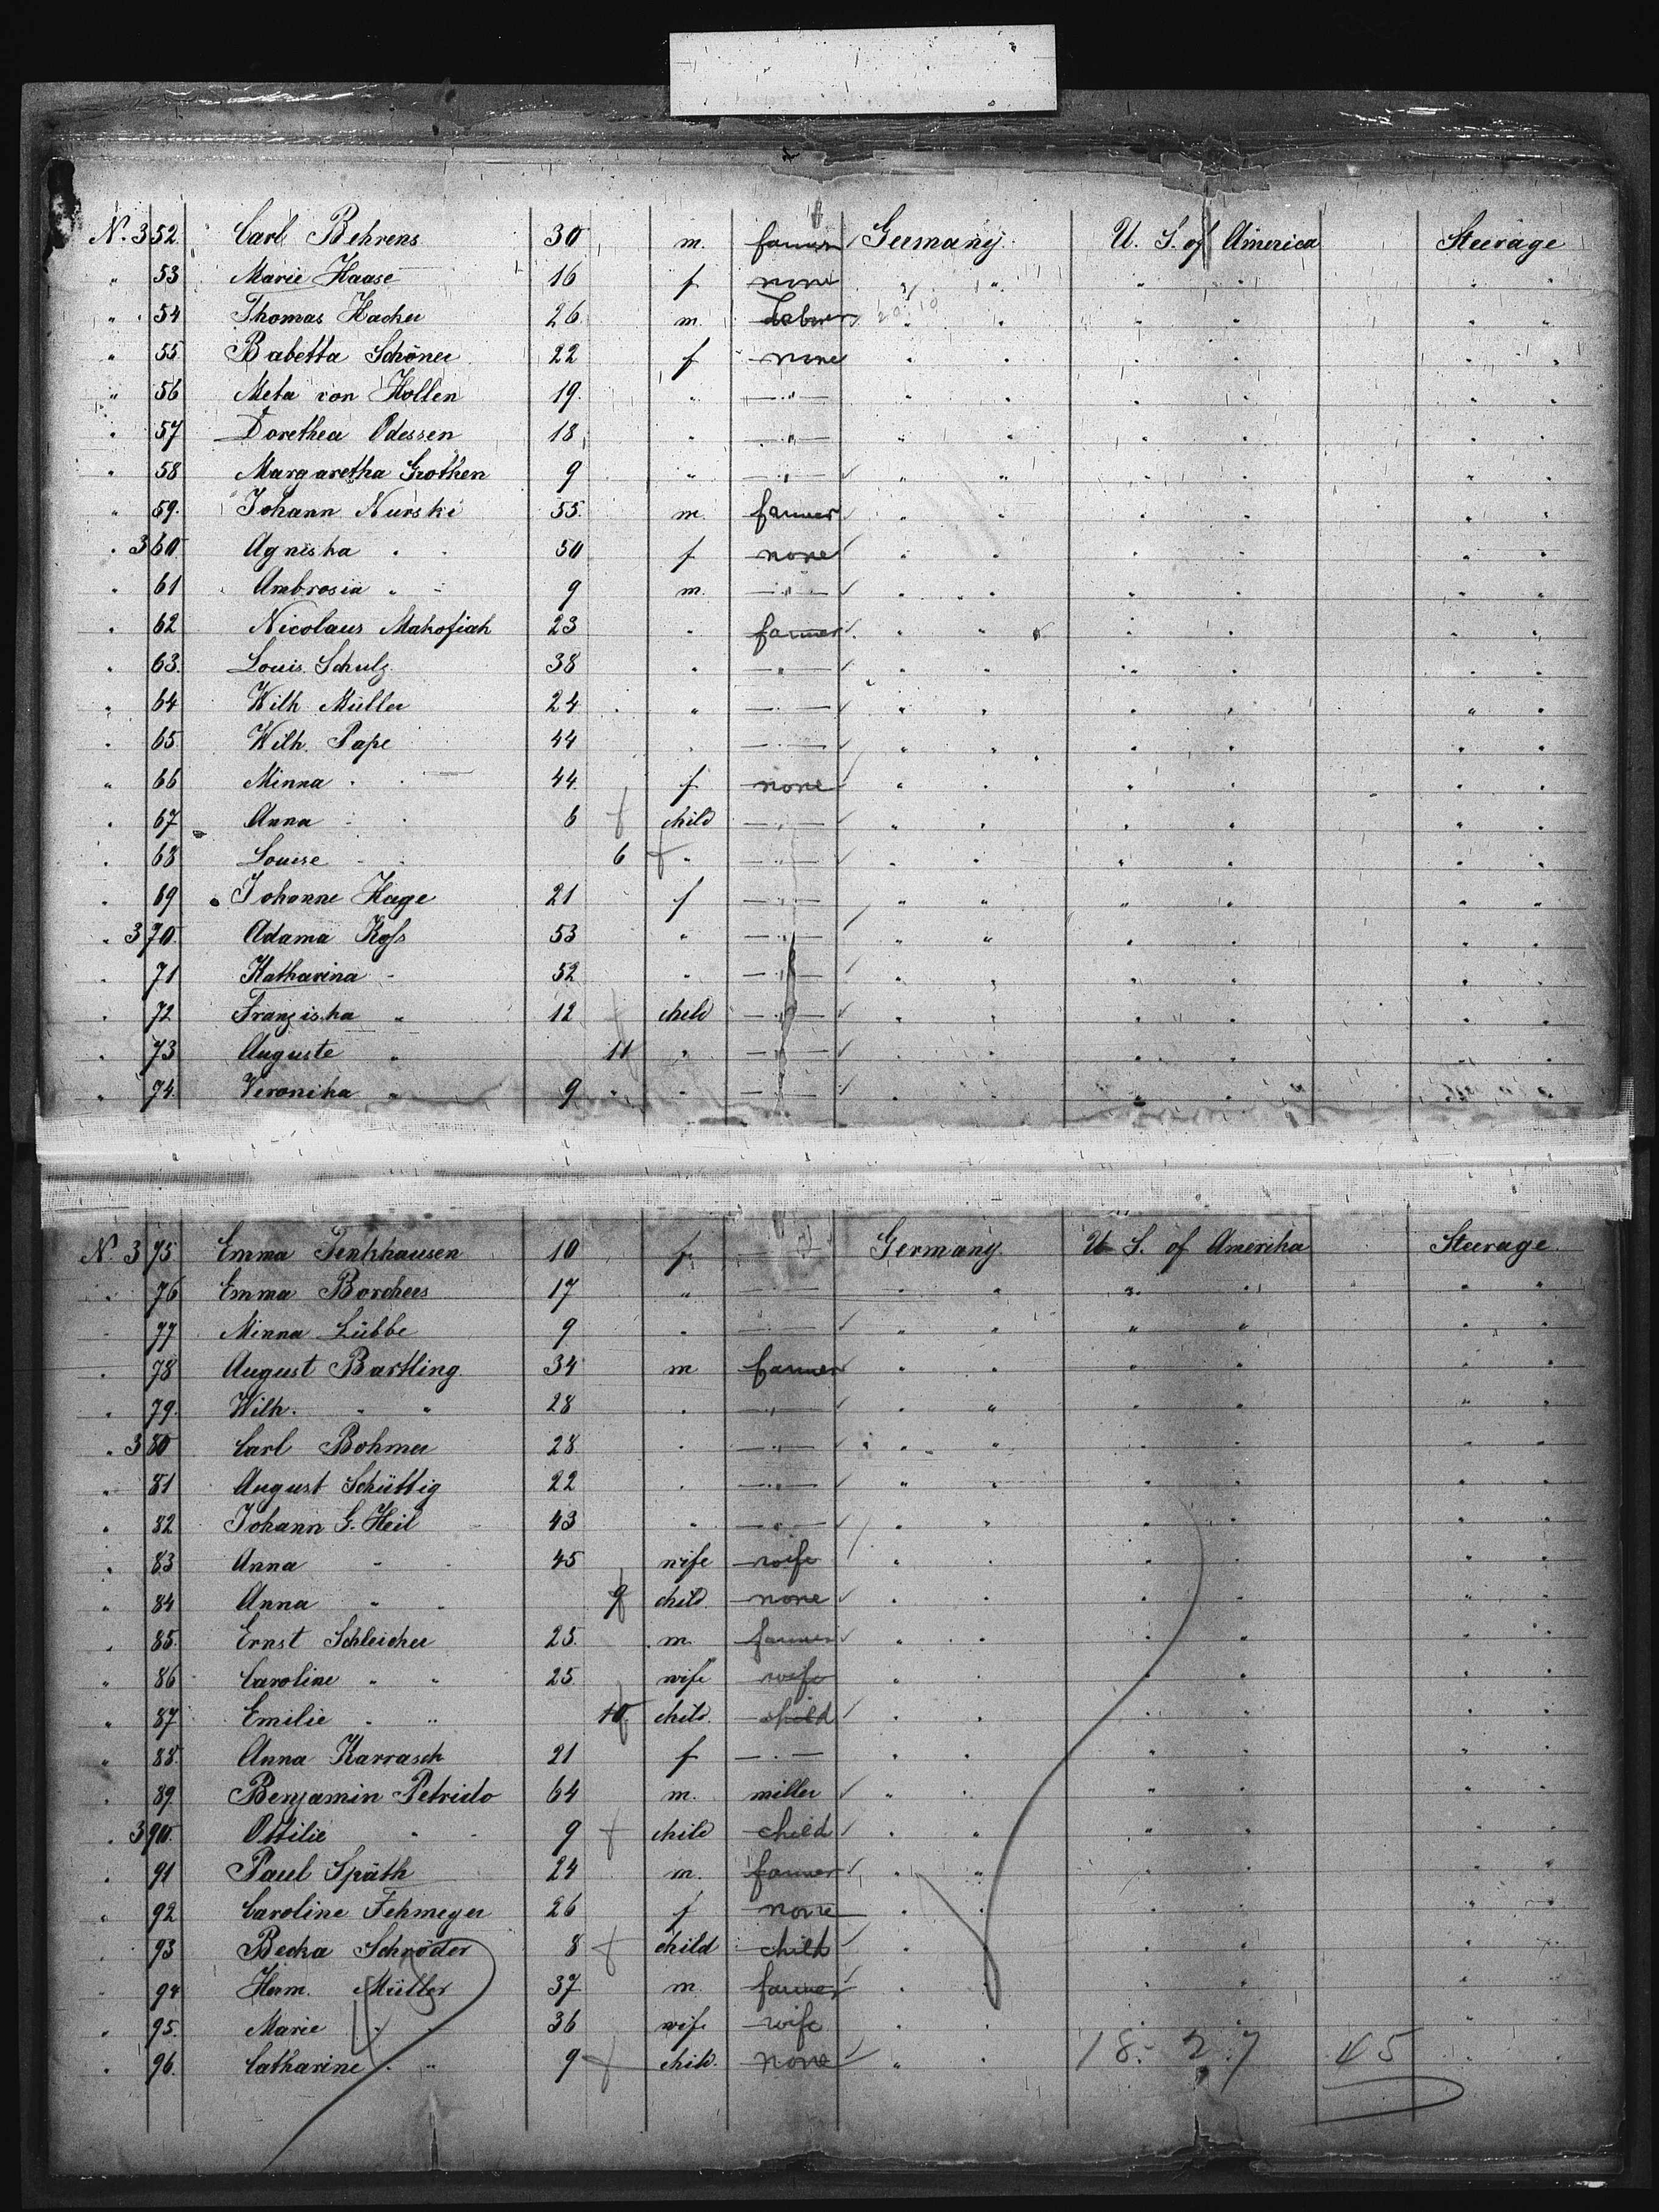 N. 352 Carl Behrens 30 m. farmer Germany U. S. of America Steerage
" 53 Marie Haase 16 f none " " " " " "
" 54 Thomas Hacker 26 m. Labor " " " " " "
" 55 Babetta Schöner 22 f none " " " " " "
" 56 Meta von Hollen 19 " —"— " " " " " "
" 57 Dorethea Odessen 18 " —"— " " " " " "
" 58 Margaretha Grothen 9 " —"— " " " " " "
" 59. Johann Nurski 55. m. farmer " " " " " "
" 360 Agniska " " 50 f none " " " " " "
" 61 Ambrosia " " 9 m. —"— " " " " " "
" 62 Nicolaus 23 " farmer " " " " " "
" 63. Louis Schulz 38 " —"— " " " " " "
" 64 Wilh. Müller 24 " —"— " " " " " "
" 65 Wilh. Pape 44 " —"— " " " " " "
" 66 Minna " " 44. f none " " " " " "
" 67 Anna " " 6 child —"— " " " " " "
" 68 Louise " " 6 " —"— " " " " " "
" 69 Johanne Hage 21 f —"— " " " " " "
" 370. Adama Koſs 53 " —"— " " " " " "
" 71 Katharina " 52 " —"— " " " " " "
" 72 Franziska " 12 child —"— " " " " " "
" 73 Auguste " 11 " —"— " " " " " "
" 74. Veronika " 9 " —"— " " " " " "
N. 375 Emma Tenkhausen 10 f. —"— Germany U. S. of Amerika Steerage.
" 76 Emma Borchers 17 " —"— " " " " " "
" 77 Minna Lübbe 9 " —"— " " " " " "
" 78 August Bartling 34 m farmer " " " " " "
" 79. Wilh. " " 28 " —"— " " " " " "
" 380 Carl Bohmer 28. " —"— " " " " " "
" 81 August Schüttig 22 " —"— " " " " " "
" 82 Johann G. Heil 43 " —"— " " " " " "
" 83 Anna " " 45 wife wife " " " " " "
" 84 Anna " " 9 child. none " " " " " "
" 85. Ernst Schleicher 25. m. farmer " " " " " "
" 86 Caroline " " 25. wife wife " " " " " "
" 87 Emilie " " 10. child. child " " " " " "
" 88. Anna Karrasch 21 f —"— " " " " " "
" 89. Benjamin Petrido 64 m. miller " " " " " "
" 390. Ottilie " " 9 child child " " " " " "
" 91 Paul Späth 24 m. farmer " " " " " "
" 92 Caroline Fehmeyer 26 f none " " " " " "
" 93 Becka Schröder 8 child child " " " " " "
" 94 Herm. Müller 37 m. farmer " " " " " "
" 95. Marie " " 36 wife wife " " " " " "
" 96. Catharine " " 9 child. none " " 18. 27 45 " "